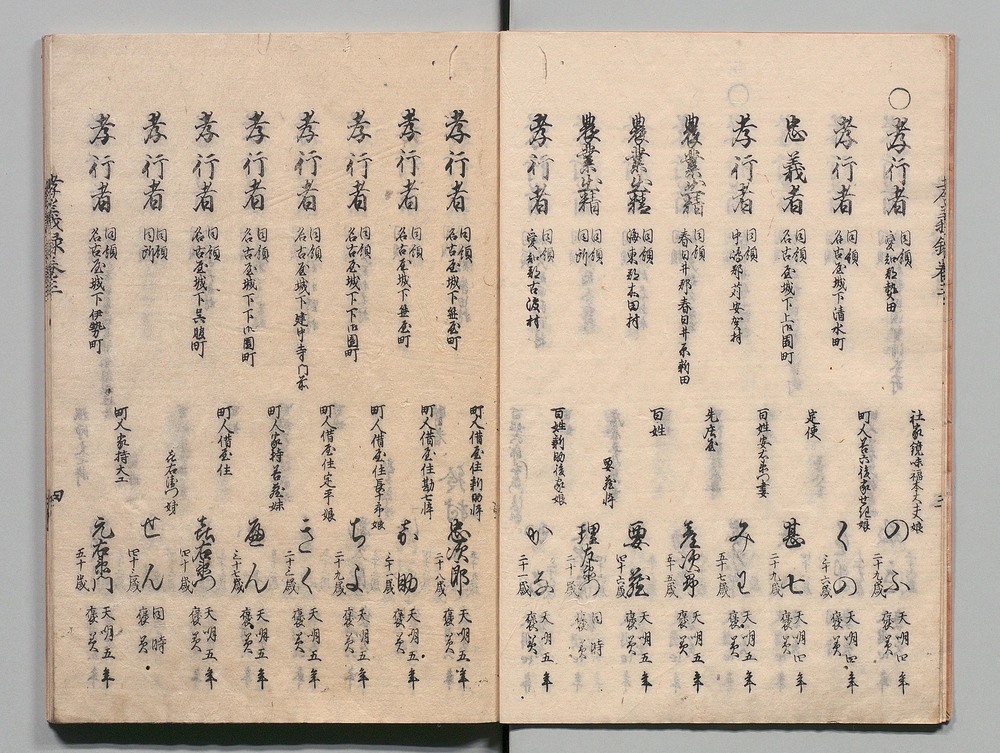 孝義録巻三
〇孝行者 同領 愛知郡熱田 社家鏡味福本大夫娘 のふ 二十九歳 天明四年 褒美
孝行者 同領 名古屋城下清水町 町人 後家世犯娘 くの 三十六歳 天明四年 褒美
忠義者 同領 名古屋城下上御園町 定使 甚七 二十九歳 天明四年 褒美
孝行者 同領 中嶋郡苅安賀村 百姓安右衛門妻 みわ 五十七歳 天明五年 褒美
農業出精 同領 春日井郡春日井原新田 先庄屋 彦次郎 五十五歳 天明五年 褒美
農業出精 同領 海東郡本田村 百姓 要蔵 四十六歳 天明五年 褒美
農業出精 同領 同所 要蔵忰 理左衛門 二十歳 同時 褒美
孝行者 同領 愛知郡古渡村 百姓新助後家娘 かな 二十一歳 天明五年 褒美
孝行者 同領 名古屋城下笹屋町 町人借屋住新助忰 忠次郎 二十八歳 天明五年 褒美
孝行者 同領 名古屋城下笹屋町 町人借屋住勘七忰 助 三十一歳 天明五年 褒美
孝行者 同領 名古屋城下御園町 町人借屋住 娘 ちよ 二十九歳 天明五年 褒美
孝行者 同領 名古屋城下建中寺門前 町人借屋住定平娘 さく 二十二歳 天明五年 褒美
孝行者 同領 名古屋城下御園町 町人家持善蔵妹 ゑん 三十七歳 天明五年 褒美
孝行者 同領 名古屋城下呉服町 町人借屋住 喜右衛門 四十歳 天明五年 褒美
孝行者 同領 同所 喜右衛門妹 せん 四十歳 同時 褒美
孝行者 同領 名古屋城下伊勢町 町人家持大工 元右衛門 五十歳 天明五年 褒美
孝義録巻三
四